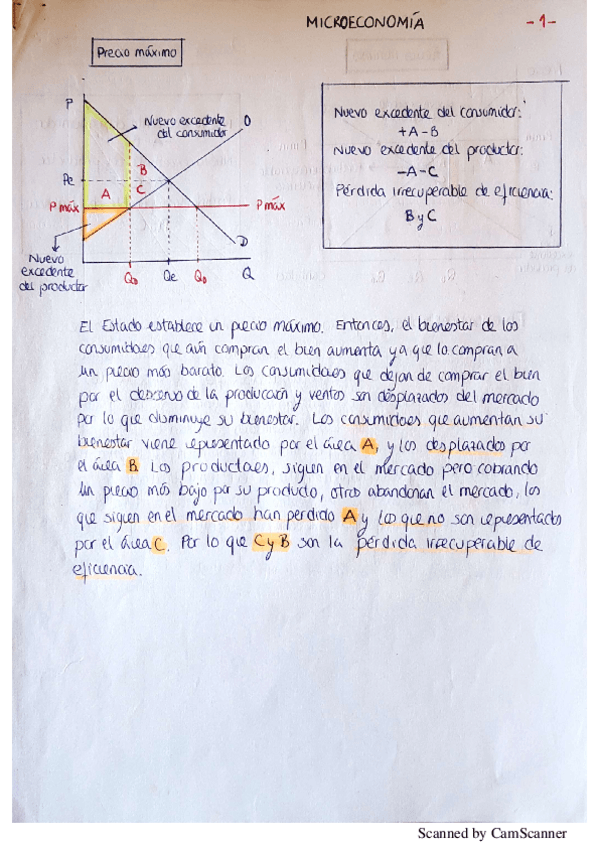 MICROECONOMÍA
-1-
Precio máximo
P
Nuevo excedente
del consumidor
O
B
Pe
C
A
P máx
P máx
D
Nuevo
excedente
del productor
Qo
Qe
QD
Q
Nuevo excedente del consumidor:
+A-B
Nuevo excedente del productor:
-A-C
Pérdida irrecuperable de eficiencia:
B y C
El Estado establece un precio máximo. Entonces, el bienestar de los
consumidores que aún compran el bien aumenta ya que lo compran a
un precio más barato. Los consumidores que dejan de comprar el bien
por el descenso de la producción y ventas son desplazados del mercado
por lo que disminuye su bienestar. Los consumidores que aumentan su
bienestar viene representado por el área A, y los desplazados por
el área B. Los productores, siguen en el mercado pero cobrando
un precio más bajo por su producto, otros abandonan el mercado, los
que siguen en el mercado han perdido A y los que no son representados
por el área C. Por lo que C y B son la pérdida irrecuperable de
eficiencia.
Scanned by CamScanner